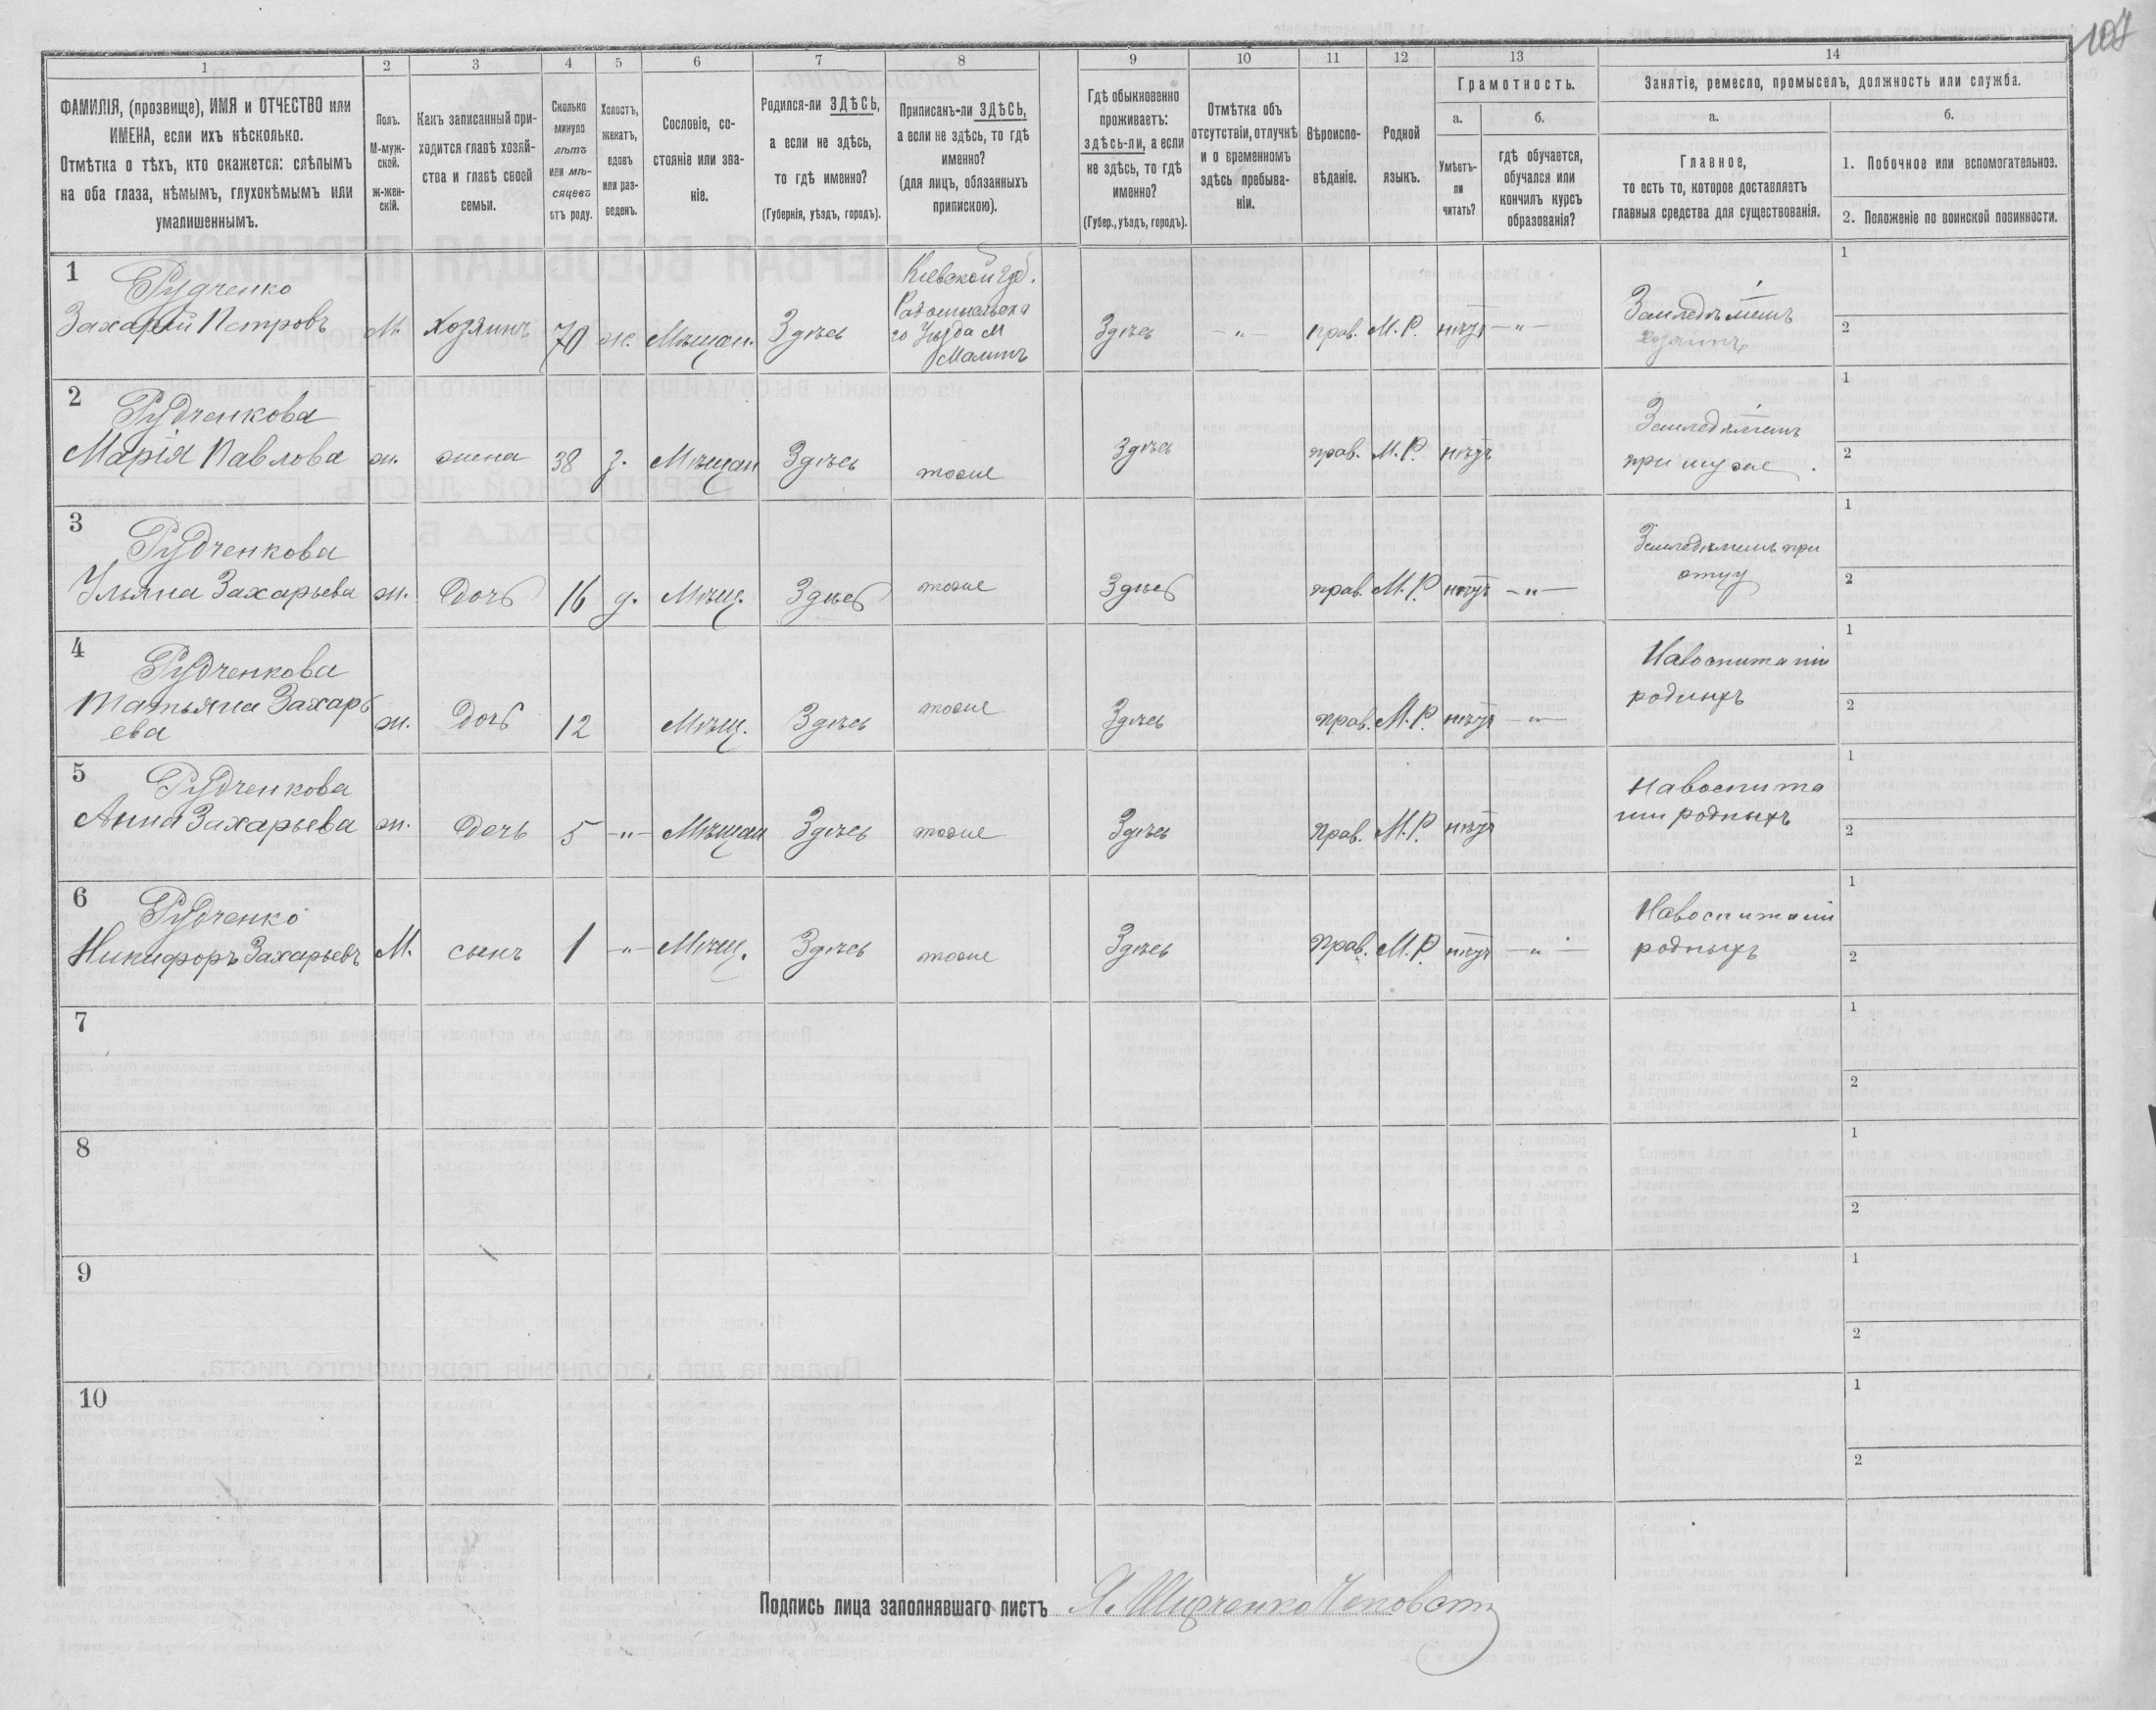 107
1 2 3 4 5 6 7 8 9 10 11 12 13 14
ФАМИЛІЯ, (прозвище), ИМЯ и ОТЧЕСТВО или
ИМЕНА, если ихъ нѣсколько.
Отмѣтка о тѣхъ, кто окажется: слѣпымъ
на оба глаза, нѣмымъ, глухонѣмымъ или
умалишеннымъ.
Полъ.
М-муж-
ской.
ж-жен-
скій.
Какъ записанный при-
ходится главѣ хозяй-
ства и главѣ своей
семьи.
Сколько
минуло
лѣтъ
или мѣ-
сяцевъ
отъ роду.
Холостъ,
женатъ,
вдовъ
или раз-
веденъ.
Сословіе, со-
стояніе или зва-
ніе.
Родился-ли ЗДѢСЬ,
а если не здѣсь,
то гдѣ именно?
(Губернія, уѣздъ, городъ).
Приписанъ-ли ЗДѢСЬ,
а если не здѣсь, то гдѣ
именно?
(для лицъ, обязанныхъ
припискою).
Гдѣ обыкновенно
проживаетъ:
здѣсь-ли, а если
не здѣсь, то гдѣ
именно?
(Губер., уѣздъ, городъ).
Отмѣтка объ
отсутствіи, отлучкѣ
и о временномъ
здѣсь пребыва-
ніи.
Вѣроиспо-
вѣданіе.
Родной
языкъ.
Грамотность.
а.
Умѣетъ-
ли
читать?
б.
гдѣ обучается,
обучался или
кончилъ курсъ
образованія?
Занятіе, ремесло, промыселъ, должность или служба.
а.
Главное,
то есть то, которое доставляетъ
главныя средства для существованія.
б.
1. Побочное или вспомогательное.
2. Положеніе по воинской повинности.
1
Рудченко
Захарій Петровъ
М. Хозяинъ 70 ж. Мѣщан. Здѣсь
Кіевской губ.
го Уѣзда М
Малинъ
Здѣсь — „ — прав. М. Р. нѣтъ — „ —
Земледѣлецъ
Хозяинъ
1
2
2
Рудченкова
Марія Павлова
ж. жена 38 з. Мѣщан Здѣсь тоже Здѣсь прав. М. Р. нѣтъ
Земледѣлецъ
при мужѣ.
1
2
3
Рудченкова
Ульяна Захарьева
ж. Дочь 16 д. Мѣщ. Здѣсь тоже Здѣсь прав. М. Р. нѣтъ — „ —
Земледѣлецъ при
отцу
1
2
4
Рудченкова
Татьяна Захарь
ева
ж. Дочь 12 Мѣщ. Здѣсь тоже Здѣсь прав. М. Р. нѣтъ — „ —
Навоспитаніи
родныхъ
1
2
5
Рудченкова
Анна Захарьева
ж. Дочь 5 — „ — Мѣщан Здѣсь тоже Здѣсь Прав. М. Р. нѣтъ
Навоспита
ніи родныхъ
1
2
6
Рудченко
Никифоръ Захарьевъ
М. сынъ 1 — „ — Мѣщ. Здѣсь тоже Здѣсь Прав. М. Р нѣтъ — „ —
Навоспитаніи
родныхъ
1
2
7
1
2
8
1
2
9
1
2
10
1
2
Подпись лица заполнявшаго листъ